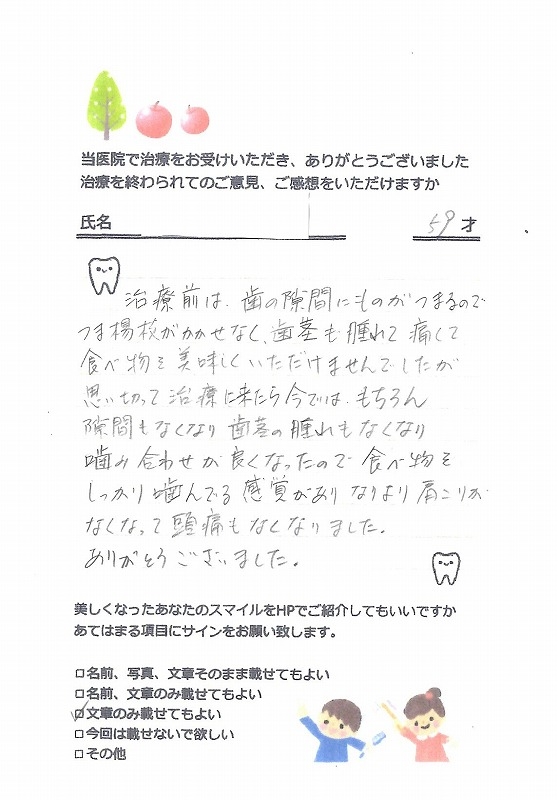 当医院で治療をお受けいただき、ありがとうございました
治療を終わられてのご意見、ご感想をいただけますか
氏名 59才
治療前は、歯の隙間にものがつまるので
つま楊枝がかかせなく、歯茎も腫れて痛くて
食べ物を美味しくいただけませんでしたが
思い切って治療に来たら今では、もちろん
隙間もなくなり歯茎の腫れもなくなり
噛み合わせが良くなったので食べ物を
しっかり噛んでる感覚がありなにより肩こりが
なくなって頭痛もなくなりました。
ありがとうございました。
美しくなったあなたのスマイルをHPでご紹介してもいいですか
あてはまる項目にサインをお願い致します。
□名前、写真、文章そのまま載せてもよい
□名前、文章のみ載せてもよい
□文章のみ載せてもよい
□今回は載せないで欲しい
□その他